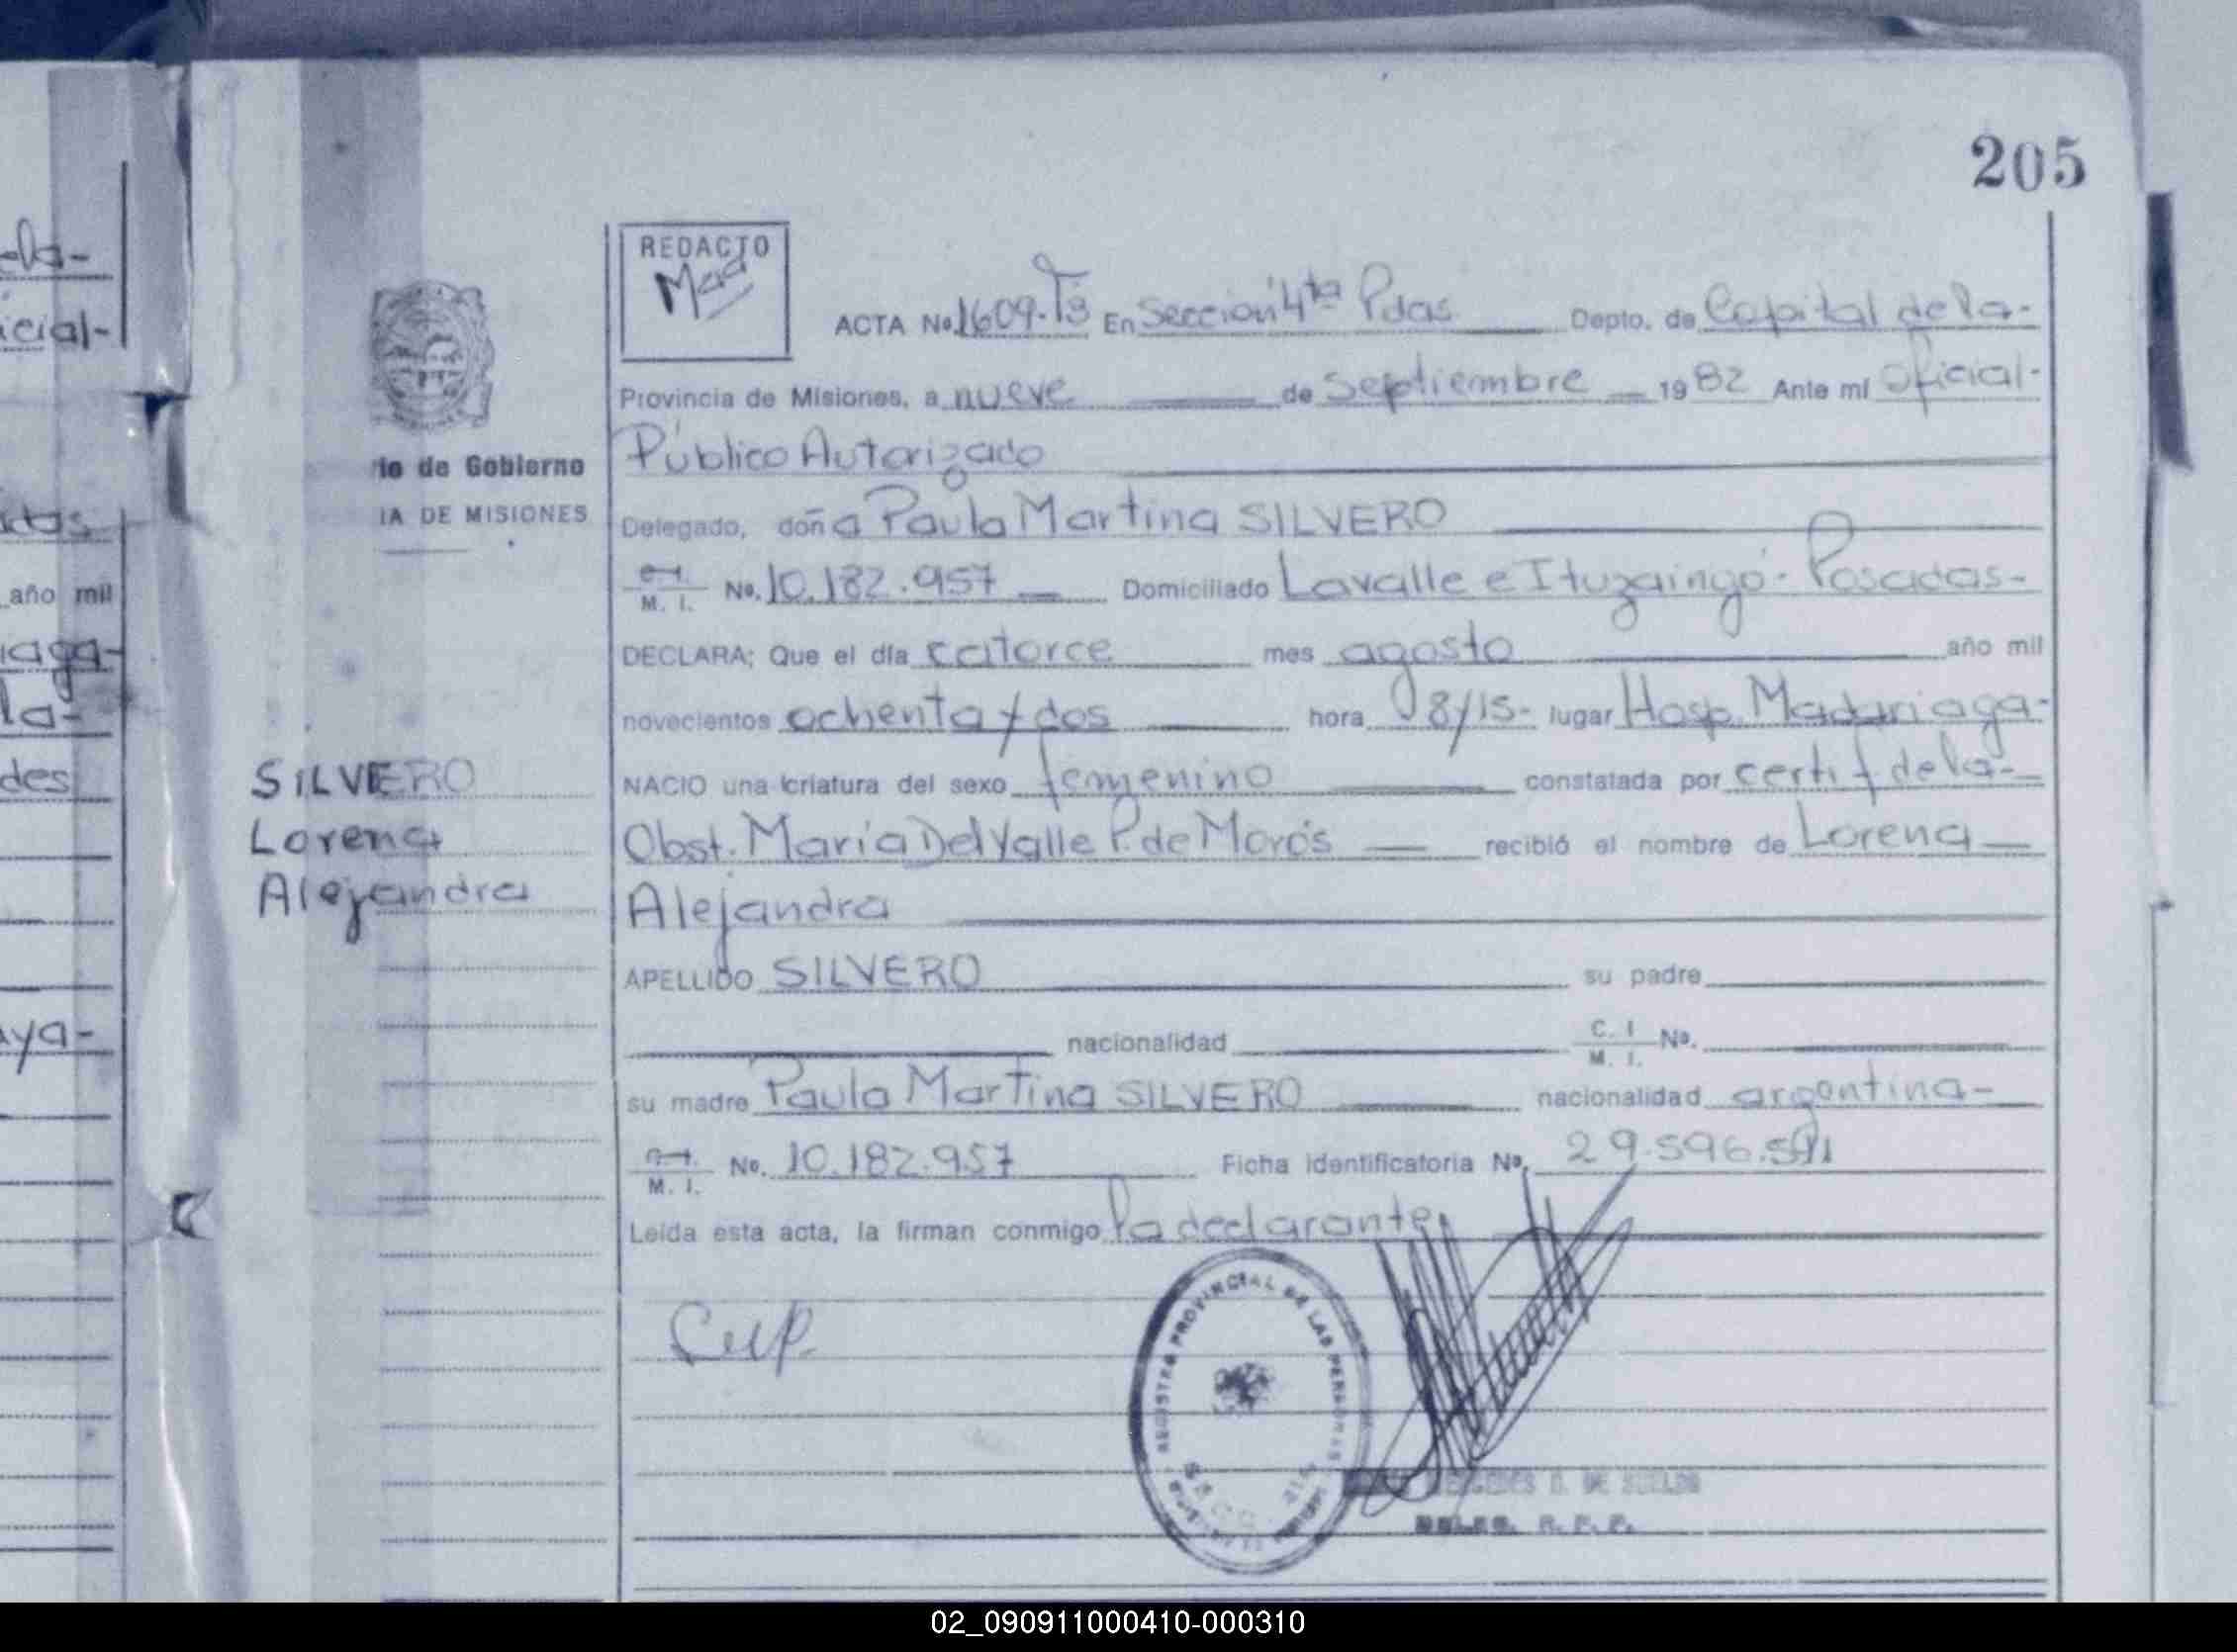 205
REDACTO
ACTA No. 1609-T3 En Sección 4ta Pdas Depto. de Capital de la-
Provincia de Misiones, a nueve de Septiembre 1982 Ante mí Oficial-
io de Gobierno
Público Autorizado
IA DE MISIONES
Delegado, doña Paula Martina SILVERO
M. I. No. 10.182.957 Domiciliado Lavalle e Ituzaingó- Posadas-
DECLARA; Que el día catorce mes agosto año mil
novecientos ochenta y dos hora 8/15- lugar Hosp. Madariaga-
SILVERO
Lorena
Alejandra
NACIO una criatura del sexo femenino constatada por certif de la-
Obst. María Del Valle P. de Morós recibió el nombre de Lorena
Alejandra
APELLIDO SILVERO su padre
nacionalidad C. I M. I. No.
su madre Paula Martina SILVERO nacionalidad argentina-
M. I. No. 10.182.957 Ficha identificatoria No. 29.596.591
Leída esta acta, la firman conmigo la declarante,
REGISTRO PROVINCIAL DE LAS PERSONAS
DE SUELDO
DELEG. R. P. P.
ela-
icial-
año mil
iaga-
la-
des
aya-
02_090911000410-000310